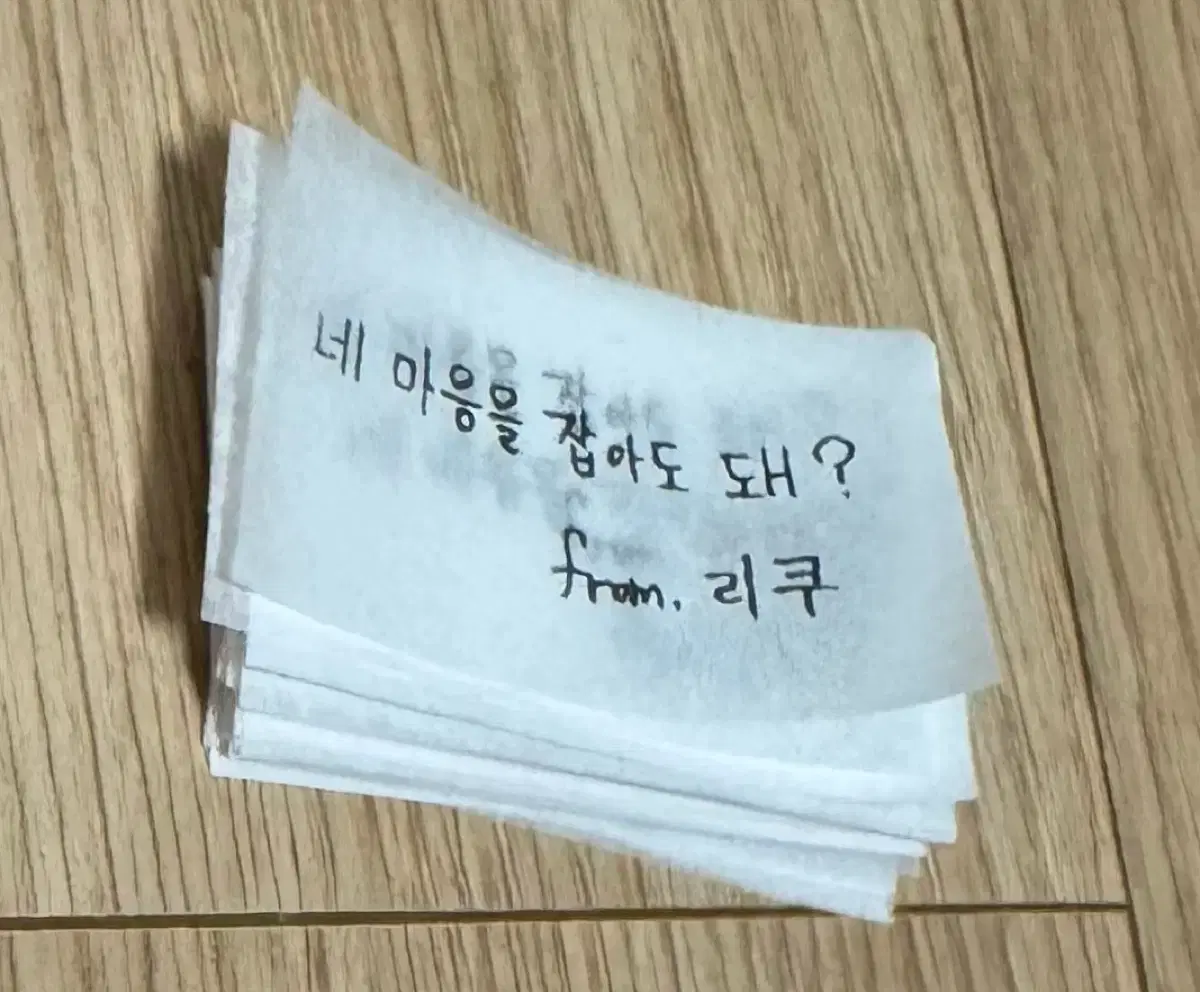 네 마음을 잡아도 돼?
from. 리쿠